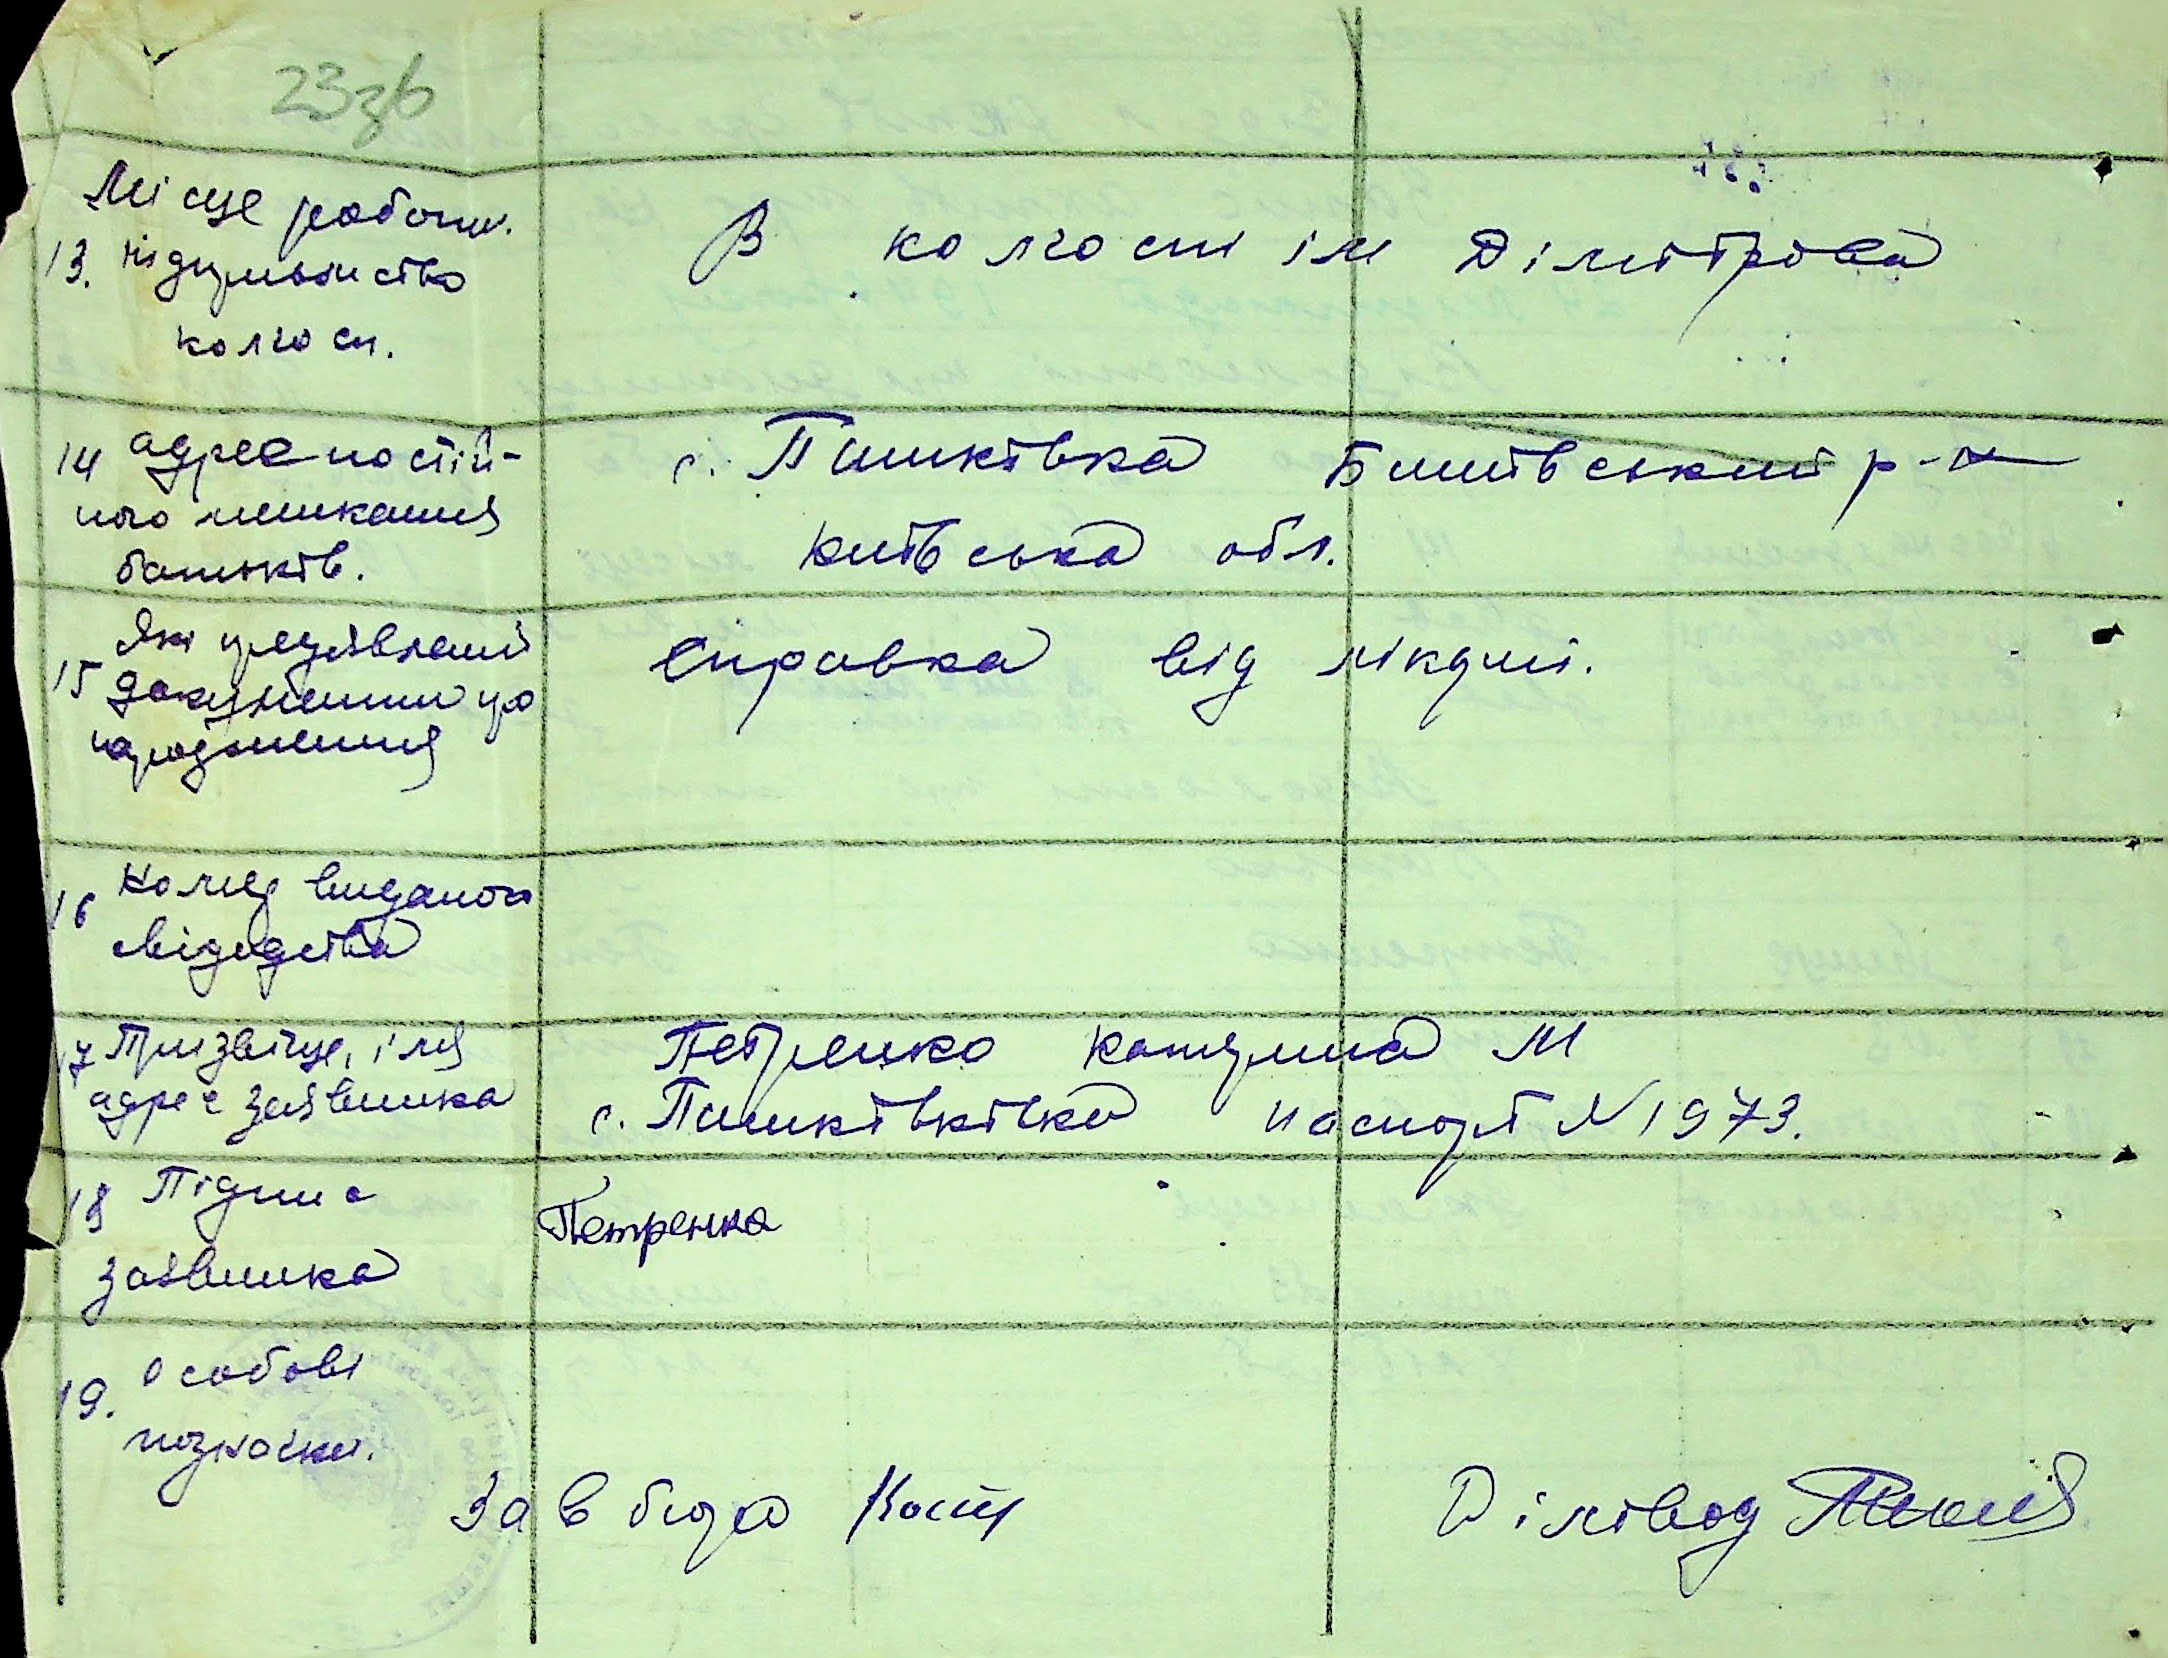 23зв
Місце роботи.
13. підприємство
колгосп.
В колгоспі ім Дімітрова
14 адрес постій-
ного мешкання
батьків.
с. Пашківка Бишівський р-н
Київська обл.
15 Які пред'явлені
документи про
народження
Справка від лікарні.
16 Номер виданого
свідоцтва
17 Призвіще, імя
адрес заявника
Петренко Катерина М
с. Пашківківка паспорт N 1973.
18 Підпис
заявника
Петренка
19. Особові
позначки.
Зав бюро Діловод